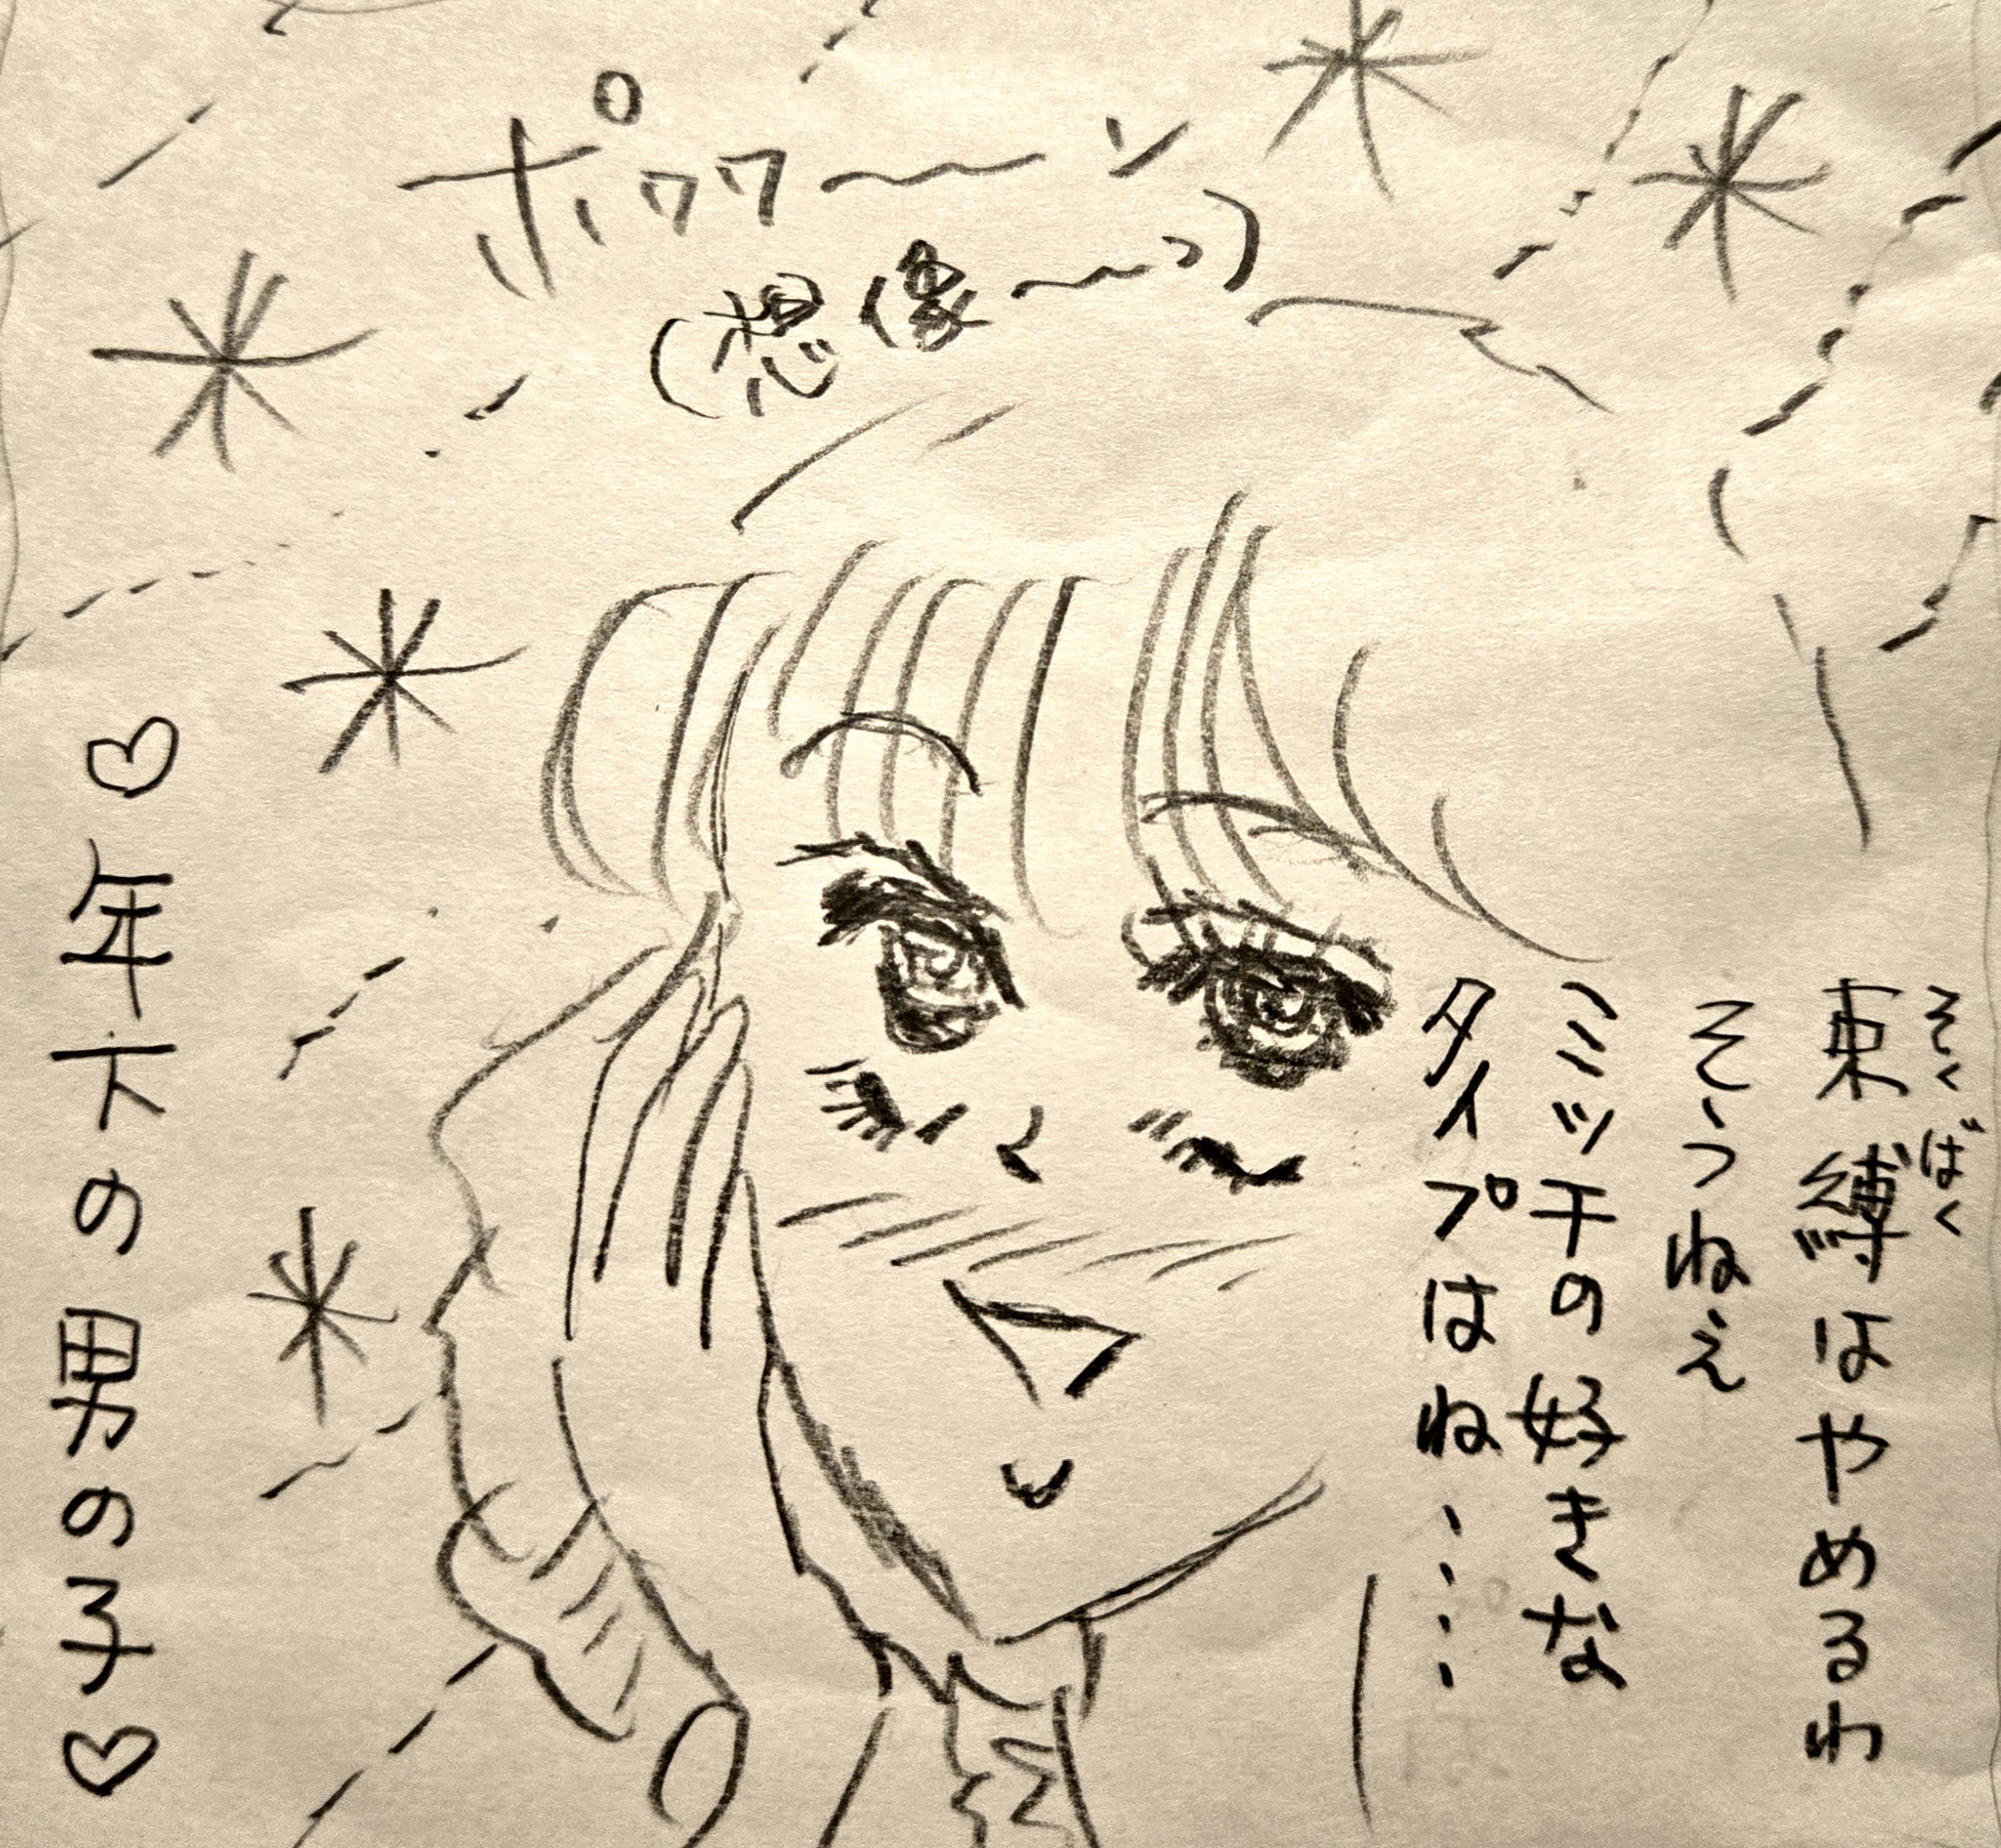 ポワワ〜〜ン
(想像〜〜っ)
そくばく
束縛はやめるわ
そうねえ
ミッ干の好きな
タイプはね……
♡年下の男の子♡